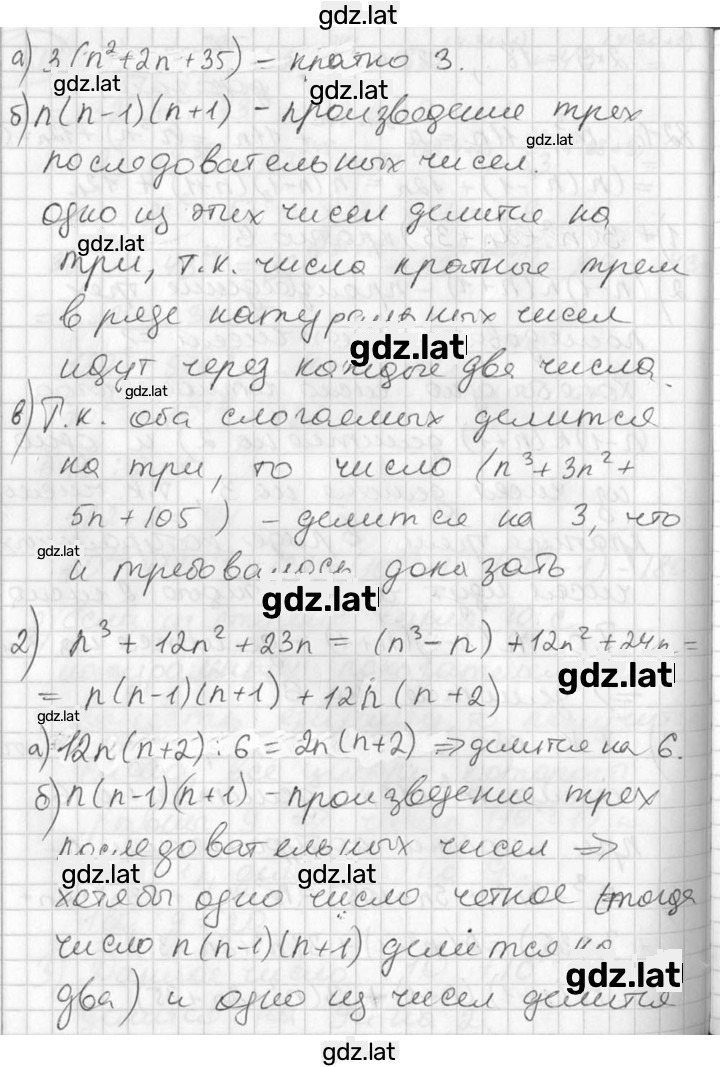 gdz.lat
а) 3(n²+2n+35) – кратно 3.
gdz.lat
gdz.lat
б) n(n-1)(n+1) – произведение трех
gdz.lat
последовательных чисел.
одно из этих чисел делится на
gdz.lat
три, т.к. числа кратные трем
в ряде натуральных чисел
gdz.lat
идут через каждые два числа.
gdz.lat
в) Т.к. оба слогаемых делится
на три, то число (n³+3n²+
5n+105) – делится на 3, что
gdz.lat
и требовалось доказать
gdz.lat
2) n³+12n²+23n = (n³-n)+12n²+24n =
gdz.lat
= n(n-1)(n+1)+12n(n+2)
gdz.lat
а) 12n(n+2):6=2n(n+2) ⇒ делится на 6.
б) n(n-1)(n+1) – произведение трех
последовательных чисел ⇒
gdz.lat
gdz.lat
хотя бы одно число четное (тогда
число n(n-1)(n+1) делится на
gdz.lat
два) и одно из чисел делится
gdz.lat